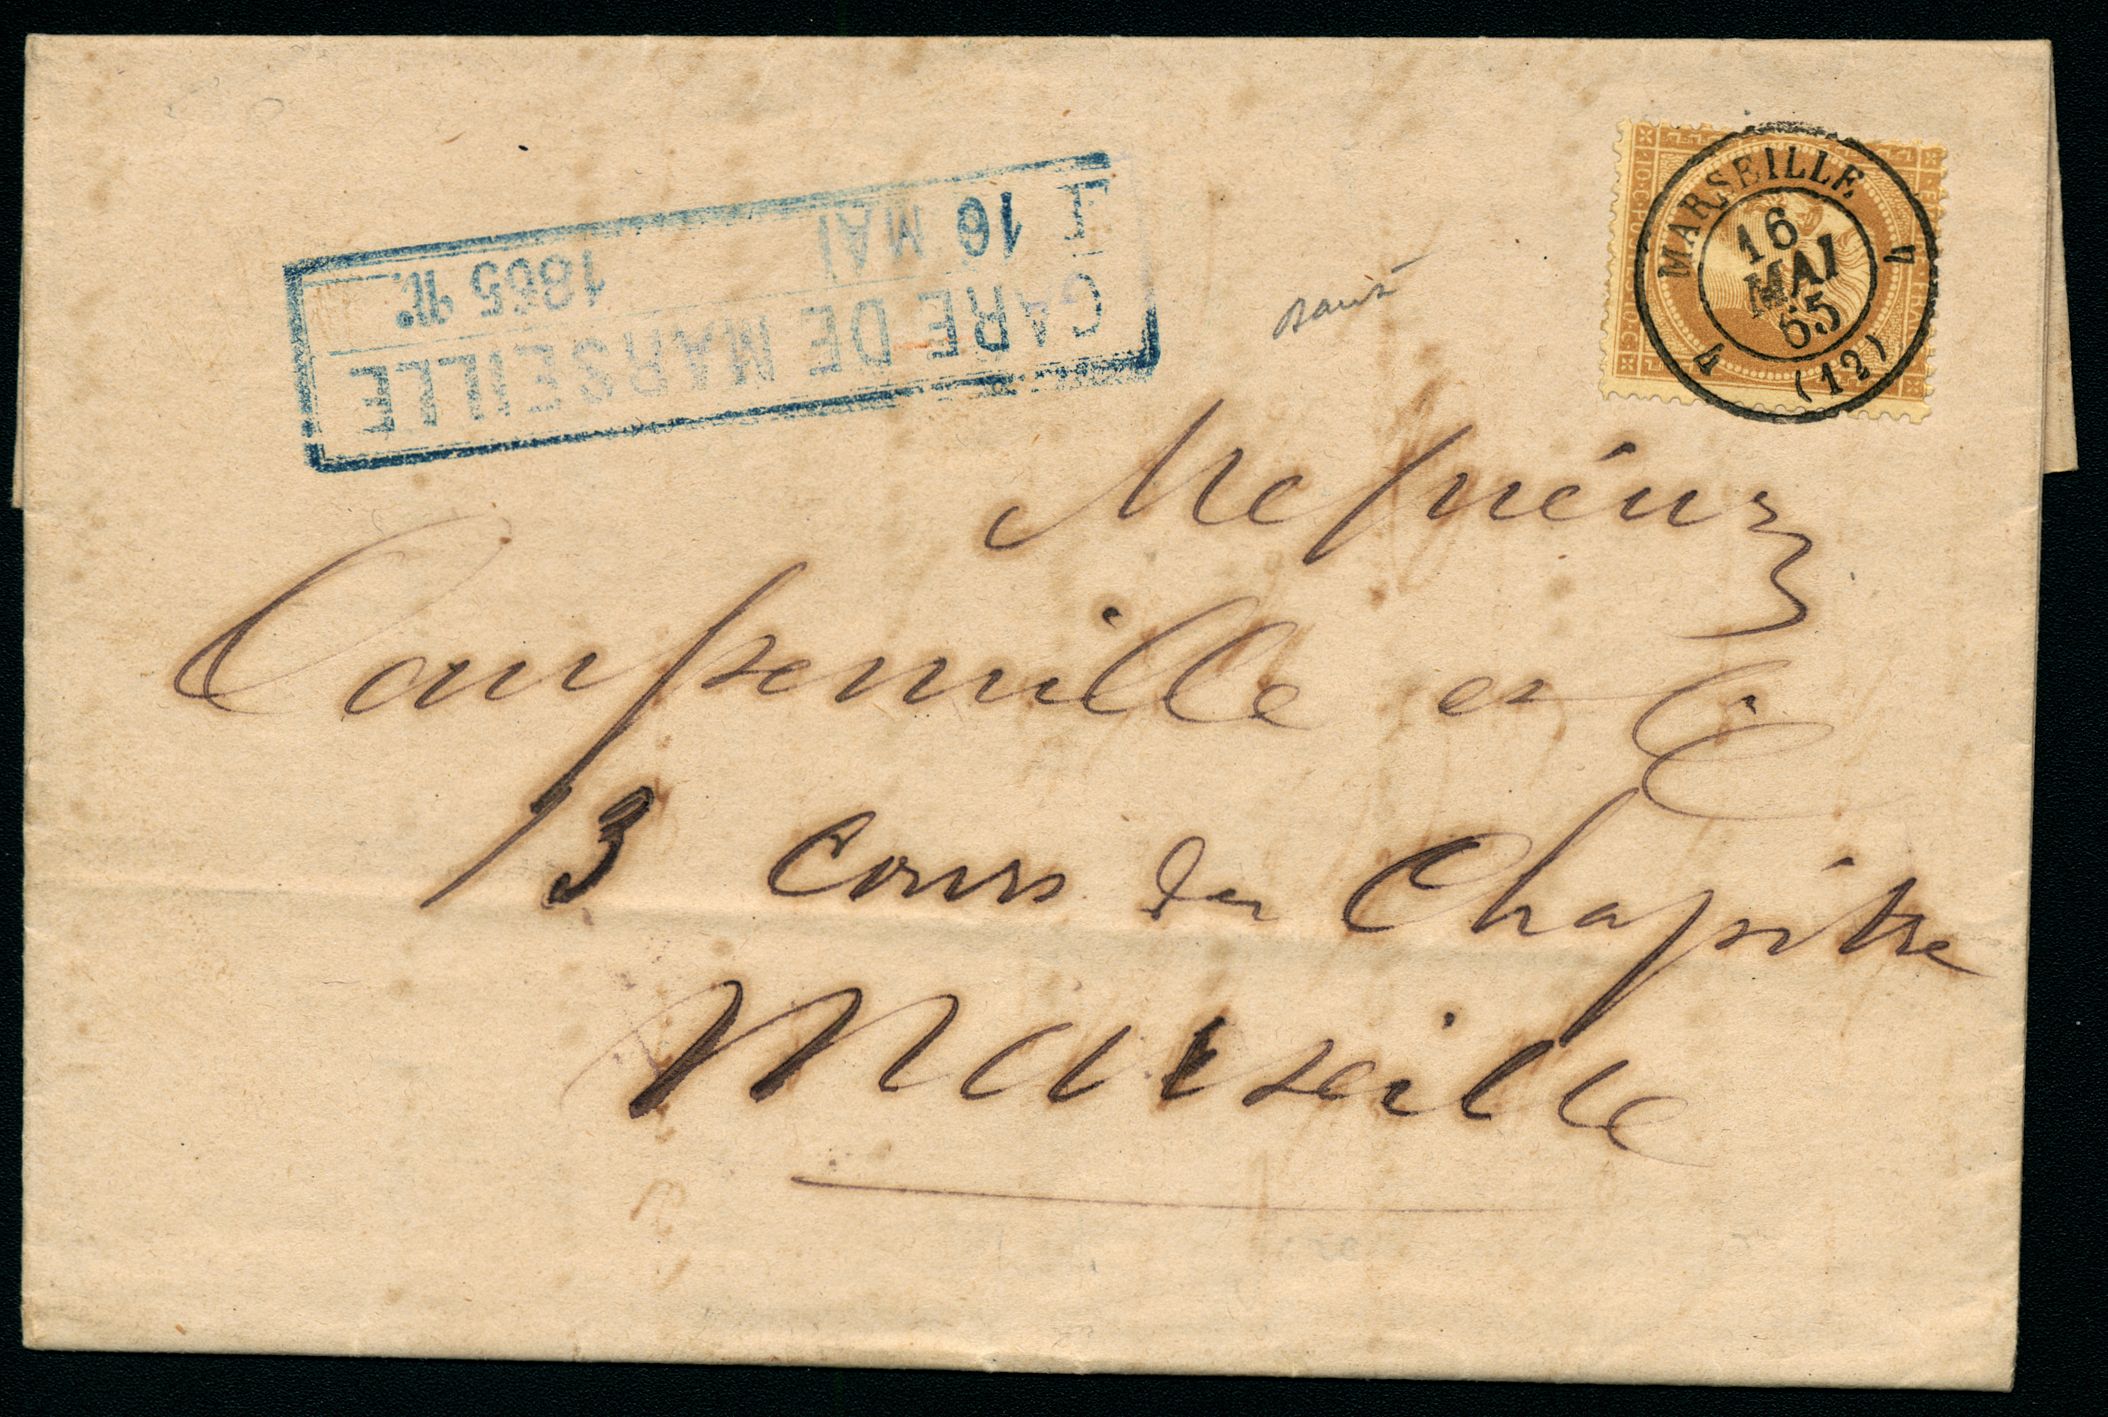 GARE DE MARSEILLE
16 MAI 1865
MARSEILLE
16
MAI
65
(12)
4 4
et Cie
13 Cours du Chapitre
Marseille